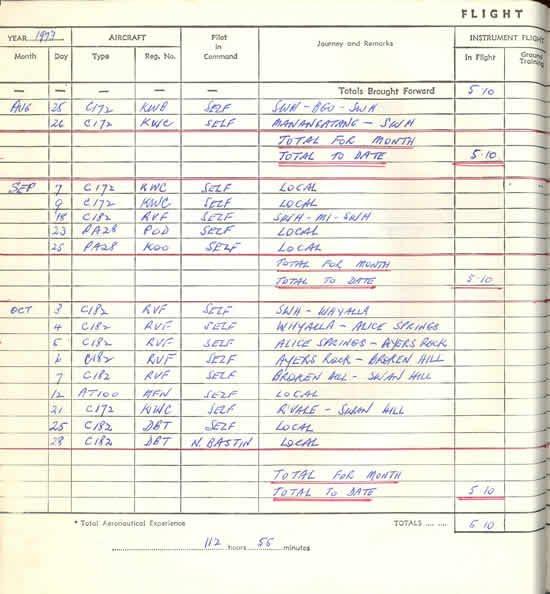 FLIGHT
YEAR 1973 AIRCRAFT Pilot in Command Journey and Remarks INSTRUMENT FLIGHT
Month Day Type Reg. No. In Flight Ground Training
— — — — — Totals Brought Forward 5 10
AUG 25 C172 KWB SELF SWH - BGO - SWH
26 C172 KWC SELF MANANGATANG - SWH
TOTAL FOR MONTH
TOTAL TO DATE 5·10
SEP 7 C172 KWC SELF LOCAL
9 C172 KWC SELF LOCAL
18 C182 RVF SELF SWH - MI - SWH
23 PA28 POD SELF LOCAL
25 PA28 KOO SELF LOCAL
TOTAL FOR MONTH
TOTAL TO DATE 5·10
OCT 3 C182 RVF SELF SWH - WHYALLA
4 C182 RVF SELF WHYALLA - ALICE SPRINGS
5 C182 RVF SELF ALICE SPRINGS - AYERS ROCK
6 C182 RVF SELF AYERS ROCK - BROKEN HILL
7 C182 RVF SELF BROKEN HILL - SWAN HILL
12 AT100 MFN SELF LOCAL
21 C172 KWC SELF R'VALE - SWAN HILL
25 C182 DBT SELF LOCAL
28 C182 DBT N. BASTIN LOCAL
TOTAL FOR MONTH
TOTAL TO DATE 5 10
* Total Aeronautical Experience TOTALS ........ 5 10
112 hours 55 minutes